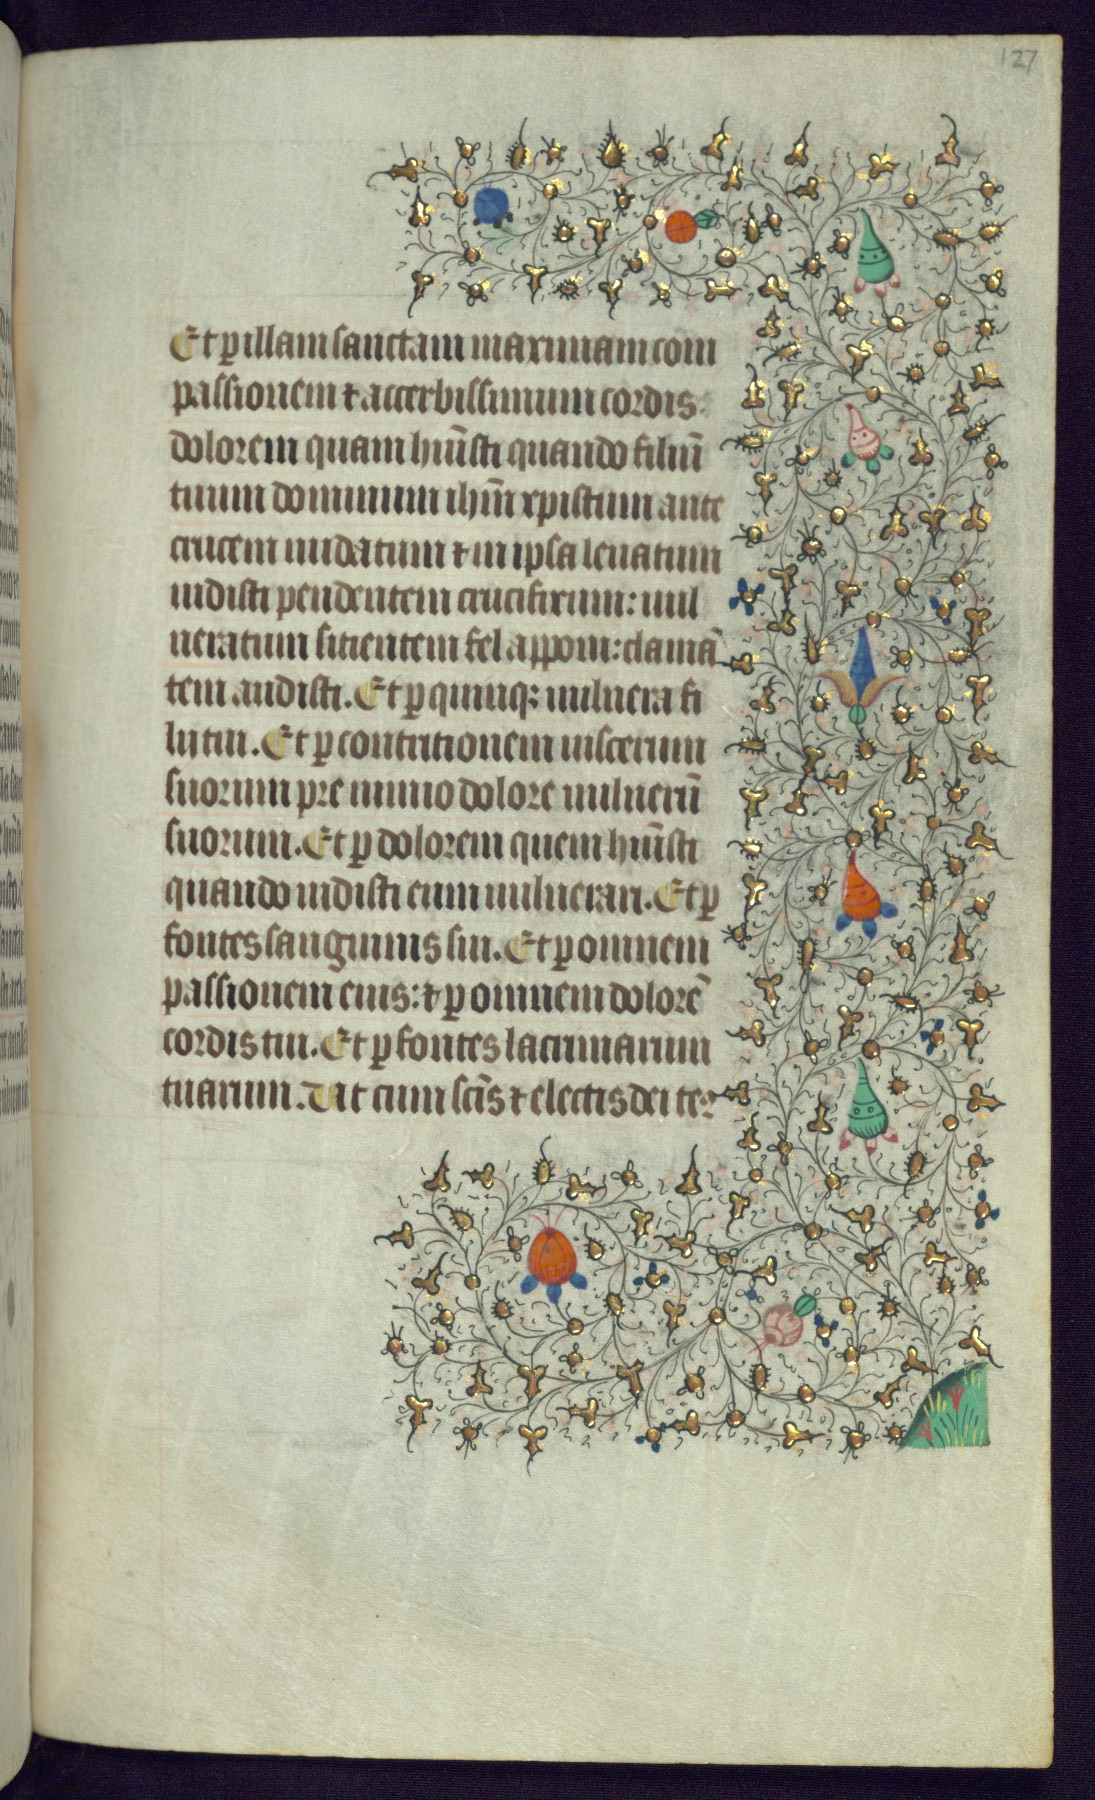 127
Et ꝑ illam sanctam maximam com
passionem ⁊ accerbissimum cordis
dolorem quam huĩsti quando filiũ
tuum dominum ihm̃ xp̄istum ante
crucem nudatum ⁊ in ipsa leuatum
uidisti pendentem crucifixum: uul
neratum sitientem fel apponi: clamã
tem audisti. Et ꝑ quinqꝫ uulnera fi
lii tui. Et ꝑ contritionem uiscerum
suorum pre nimio dolore uulnerũ
suorum. Et ꝑ dolorem quem huĩsti
quando uidisti eum uulnerari. Et ꝑ
fontes sanguinis sui. Et ꝑ omnem
passionem eius: ⁊ ꝑ omnem dolorẽ
cordis tui. Et ꝑ fontes lacrimarum
tuarum. Ut cum scĩs ⁊ electis dei te